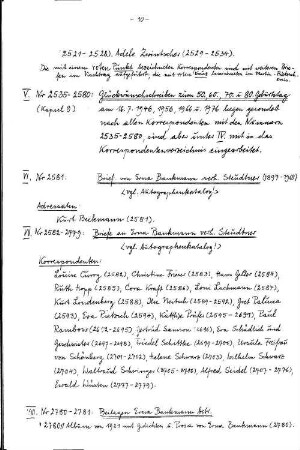 - 10 -
2521-2528), Adele Zwintscher (2529-2534).
Die mit einem roten Punkt bezeichneten Korrespondenten sind mit weiteren Brie-
fen im Nachtrag aufgeführt, die mit roten Kreuz
V. Nr 2535-2580: Glückwunschschreiben zum 50., 60., 70. u. 80. Geburtstag
(Kapsel 9) am 16.7.1946, 1956, 1966 u. 1976 liegen gesondert
nach allen Korrespondenten mit den Nummern
2535-2580, sind aber unter IV. mit in das
Korrespondentenverzeichnis eingearbeitet.
VI. Nr 2581: Brief von Erna Bankmann verh. Steudtner (1897-1968)
(vgl. Autographenkatalog!)
Adressaten:
Kurt Beckmann (2581).
VII. Nr 2582-2779: Briefe an Erna Bankmann verh. Steudtner
(vgl. Autographenkatalog!)
Korrespondenten:
Louise Curry (2582), Christine Freier (2583), Hans Geller (2584),
Ruth Kopp (2585), Cora Krafft (2586), Toni Lachmann (2587),
Kurt Lindenberg (2588), Ilse (2589-2592), Gret Palucca
(2593), Eva Pietzsch (2594), (2595-2691), Paul
(2692-2695), Gertrud Samson (2696), Eva Schädlich und
Geschwister (2697-2698), Friedel Schittke (2699-2700), Ursula Freifrau
von Schönberg (2701-2702), Helene Schwarz (2703), Wilhelm Schwarz
(2704), Waltraud Schwinger (2705-2706), Alfred Seidel (2707-2776),
Ewald Hünten (2777-2779).
VIII. Nr 2780-2781: Beilagen Erna Bankmann betr.
2780 Album von 1921 mit Gedichten u. Prosa von Erna Bankmann (2780).